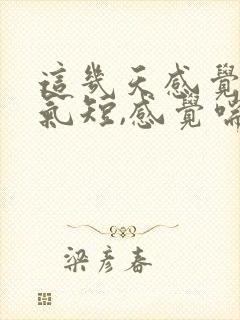 這幾天感覺
氣短,感覺喘
梁彥春